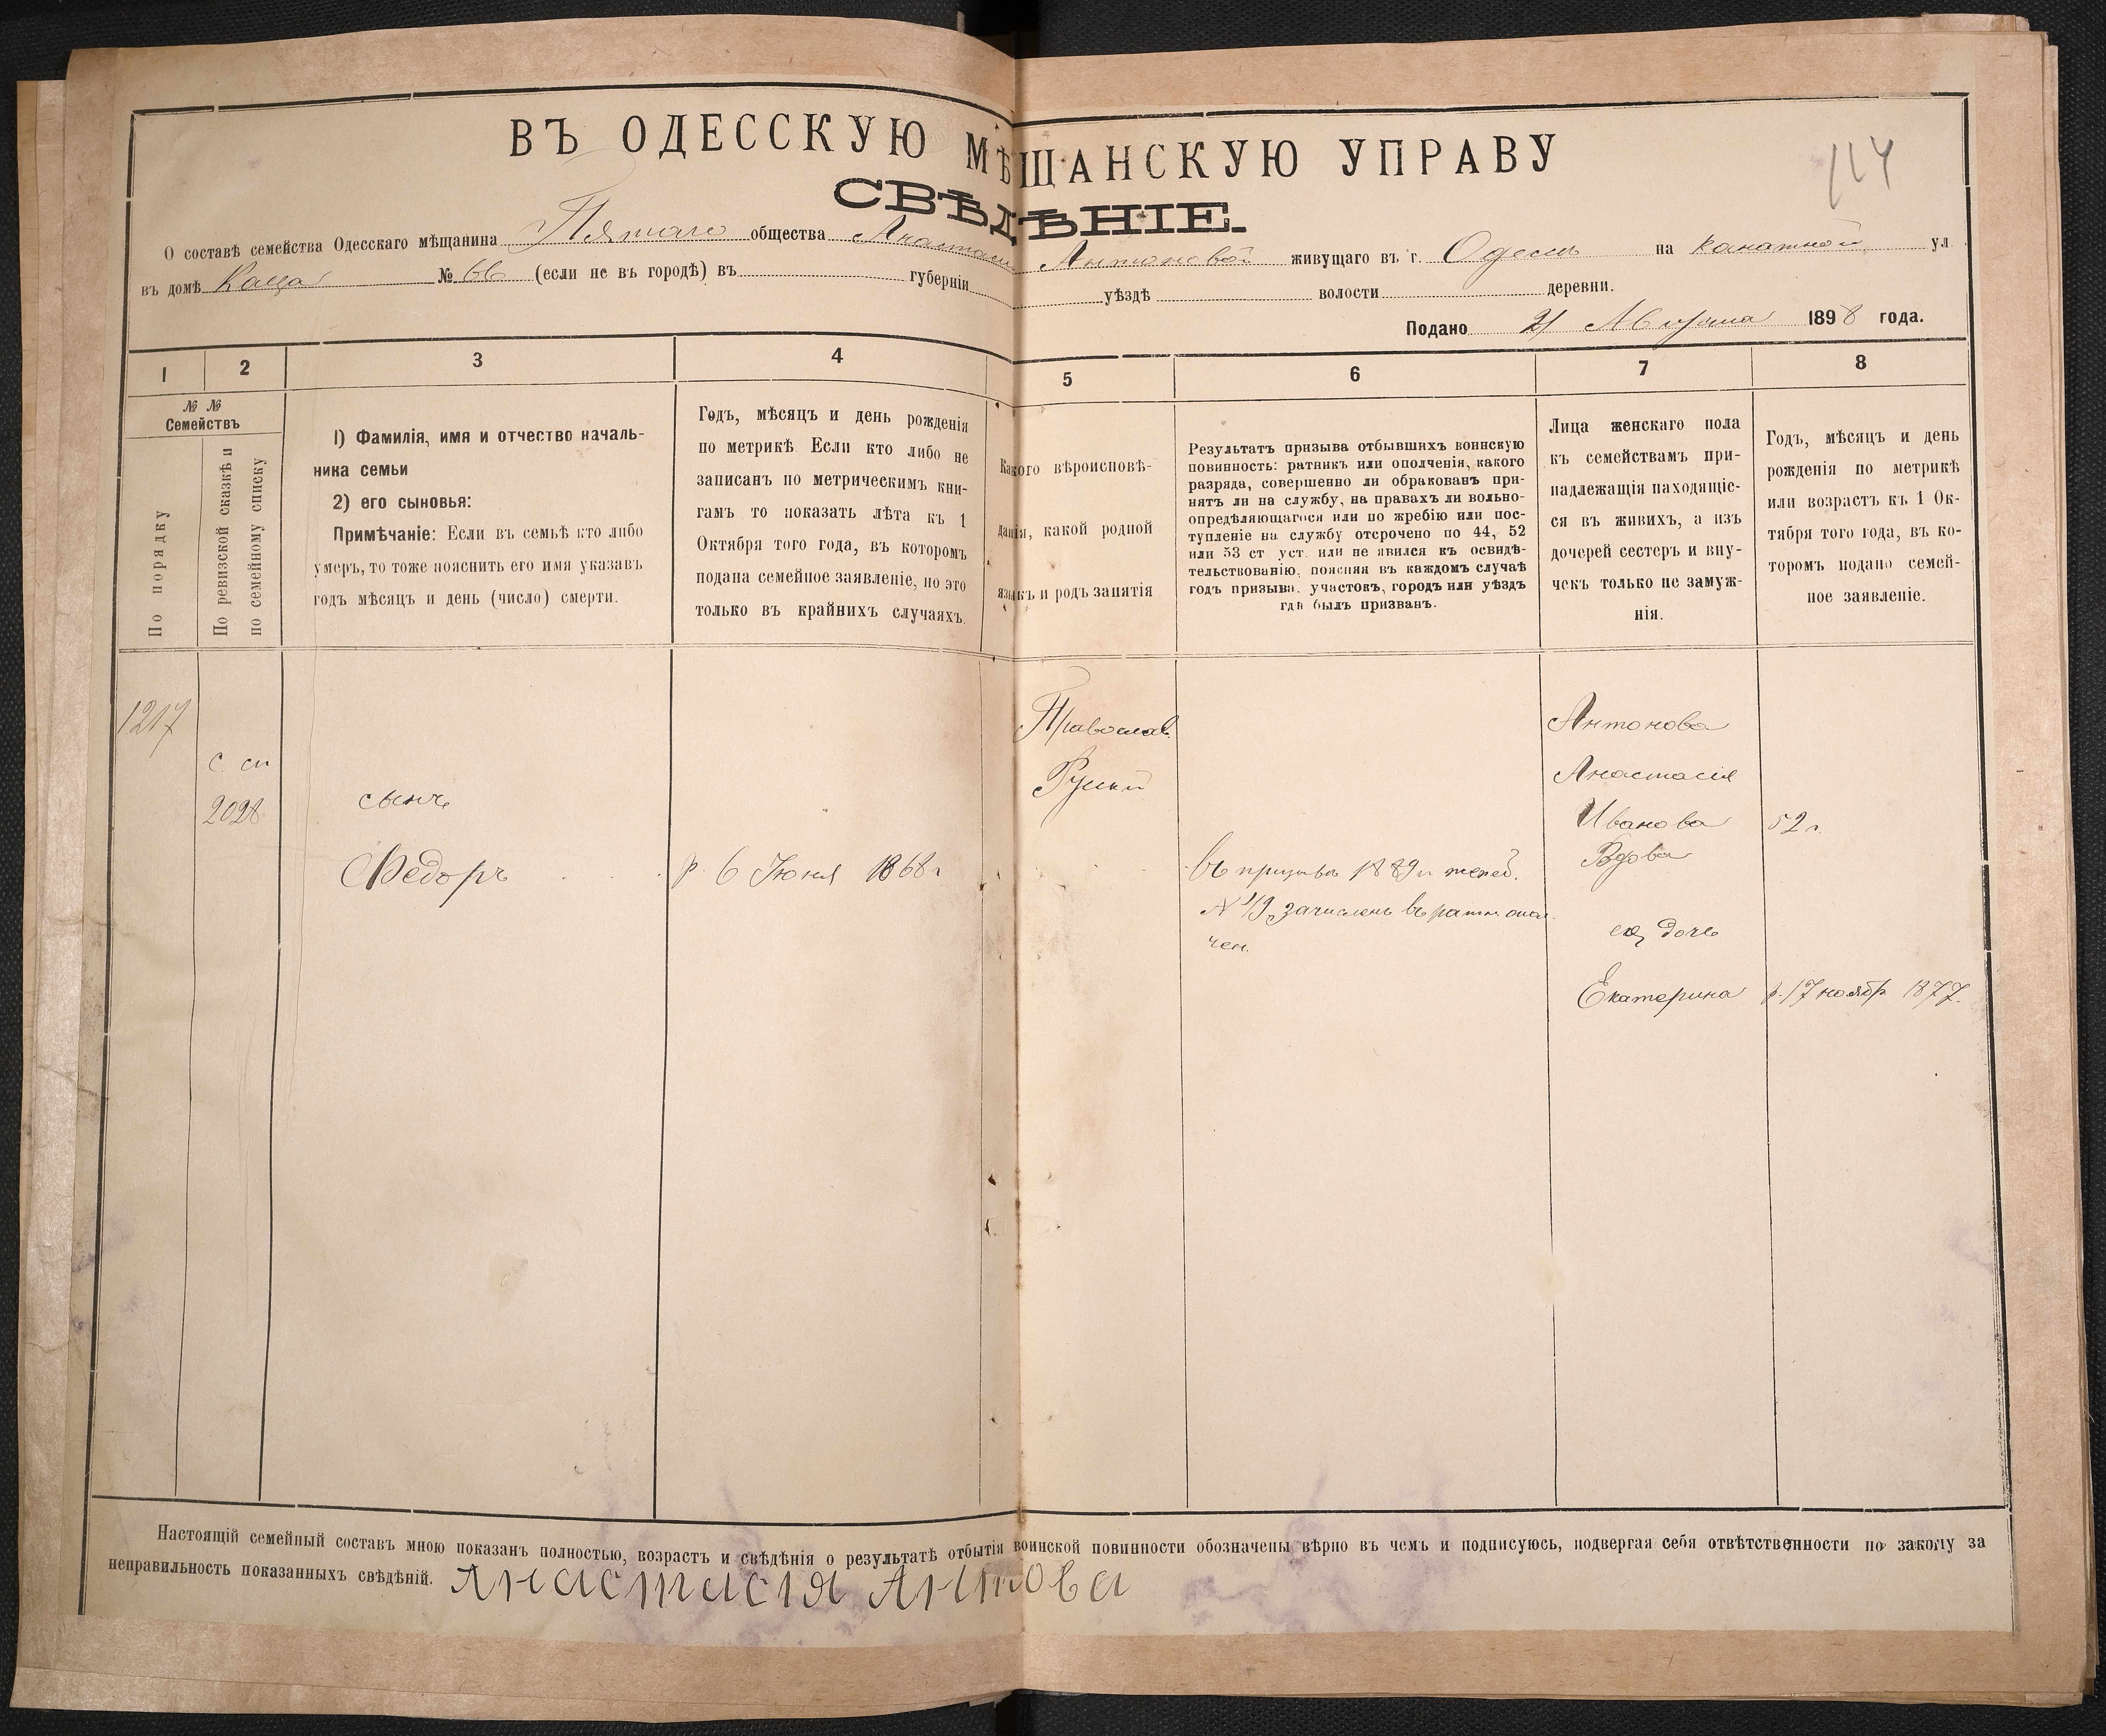 ВЪ ОДЕССКУЮ МѢЩАНСКУЮ УПРАВУ
114
СВѢДѢНІЕ.
О составѣ семейства Одесскаго мѣщанина Пятаго общества Анастасіи Антоновой живущаго въ г. Одессѣ на канатной ул
въ домѣ Каца № 66 (если не въ городѣ) въ губерніи уѣздѣ волости деревни.
Подано 21 Августа 1898 года.
1 2 3 4 5 6 7 8
№ №
Семействъ
По порядку
По ревизской сказкѣ и
по семейному списку
1) Фамилія, имя и отчество началь-
ника семьи
2) его сыновья:
Примѣчаніе: Если въ семьѣ кто либо
умеръ, то тоже пояснить его имя указавъ
годъ мѣсяцъ и день (число) смерти.
Годъ, мѣсяцъ и день рожденія
по метрикѣ Если кто либо не
записанъ по метрическимъ кни-
гамъ то показать лѣта къ 1
Октября того года, въ которомъ
подана семейное заявленіе, но это
только въ крайнихъ случаяхъ.
Какого вѣроисповѣ-
данія, какой родной
языкъ и родъ занятія
Результатъ призыва отбывшихъ воинскую
повинность: ратникъ или ополченія, какого
разряда, совершенно ли обракованъ при-
нятъ ли на службу, на правахъ ли вольно-
опредѣляющагося или по жребію или пос-
тупленіе на службу отсрочено по 44, 52
или 53 ст уст. или не явился къ освидѣ-
тельствованію, поясняя въ каждомъ случаѣ
годъ призыва, участокъ, городъ или уѣздъ
гдѣ былъ призванъ.
Лица женскаго пола
къ семействамъ при-
надлежащія находящіс-
ся въ живихъ, а изъ
дочерей сестеръ и вну-
чекъ только не замуж-
нія.
Годъ, мѣсяцъ и день
рожденія по метрикѣ
или возрастъ къ 1 Ок-
тября того года, въ ко-
торомъ подано семей-
ное заявленіе.
1217
с. сп
2028
сынъ
Федоръ
р. 6 Іюня 1868 г
Православ.
Рускій
въ призывъ 1889 г. жереб.
№ зачисленъ въ ратн. опол-
чен.
Антонова
Анастасія
Иванова
Вдова
52 г.
ея дочь
Екатерина
р. 17 ноябр. 1877.
Настоящій семейный составъ мною показанъ полностью, возрастъ и свѣдѣнія о результатѣ отбытія воинской повинности обозначены вѣрно въ чемъ и подписуюсь, подвергая себя отвѣтственности по закону за
неправильность показанныхъ свѣдѣній. Анастасія Антова